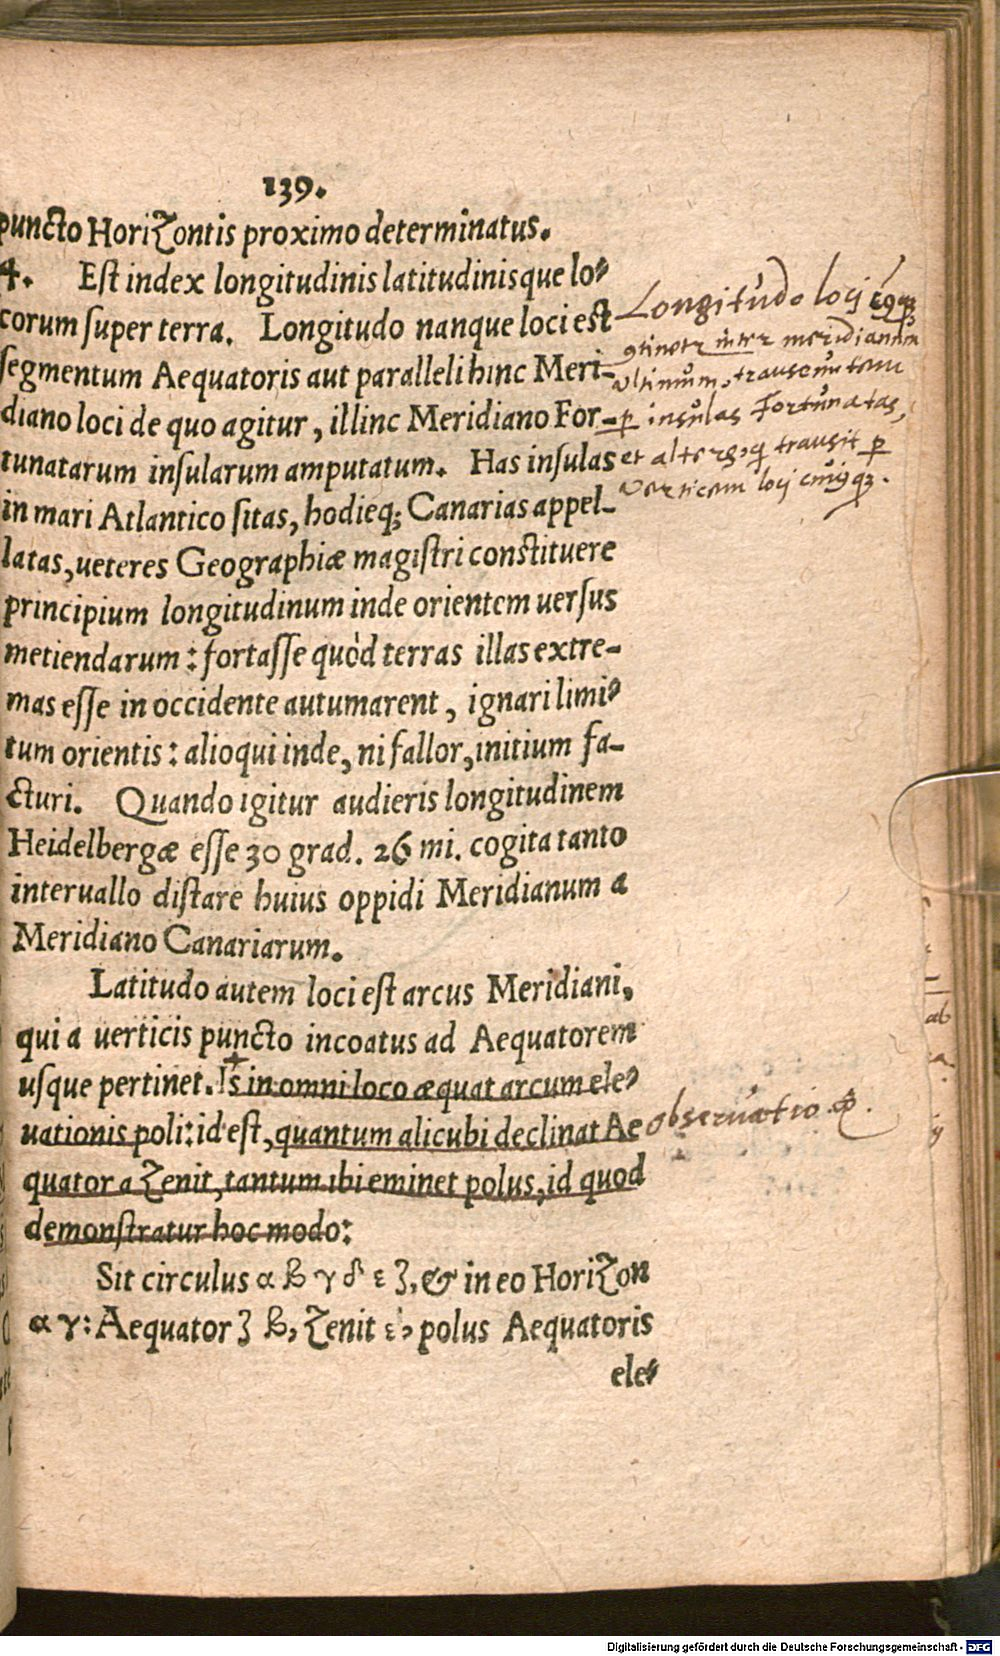 139.
puncto Horizontis proximo determinatus.
4. Est index longitudinis latitudinisque lo-
corum super terra. Longitudo nanque loci est
segmentum Aequatoris aut paralleli hinc Meri-
diano loci de quo agitur, illinc Meridiano For-
tunatarum insularum amputatum. Has insulas
in mari Atlantico sitas, hodieq; Canarias appel-
latas, ueteres Geographiæ magistri constituere
principium longitudinum inde orientem uersus
metiendarum: fortasse quòd terras illas extre-
mas esse in occidente autumarent, ignari limi-
tum orientis: alioqui inde, ni fallor, initium fa-
cturi. Quando igitur audieris longitudinem
Heidelbergæ esse 30 grad. 26 mi. cogita tanto
interuallo distare huius oppidi Meridianum a
Meridiano Canariarum.
Latitudo autem loci est arcus Meridiani,
qui a uerticis puncto incoatus ad Aequatorem
usque pertinet. Is in omni loco æquat arcum ele-
uationis poli: id est, quantum alicubi declinat Ae
quator a Zenit, tantum ibi eminet polus, id quod
demonstratur hoc modo:
Sit circulus α β γ δ ε ζ, & in eo Horizon
α γ: Aequator ζ β, Zenit ε, polus Aequatoris
ele-
Longitudo loci
inter meridianum
ultimum, transeuntem
p insulas Fortunatas,
et alterq; q transit p
verticem locj cuiqz.
observatio
ab
Digitalisierung gefördert durch die Deutsche Forschungsgemeinschaft - DFG